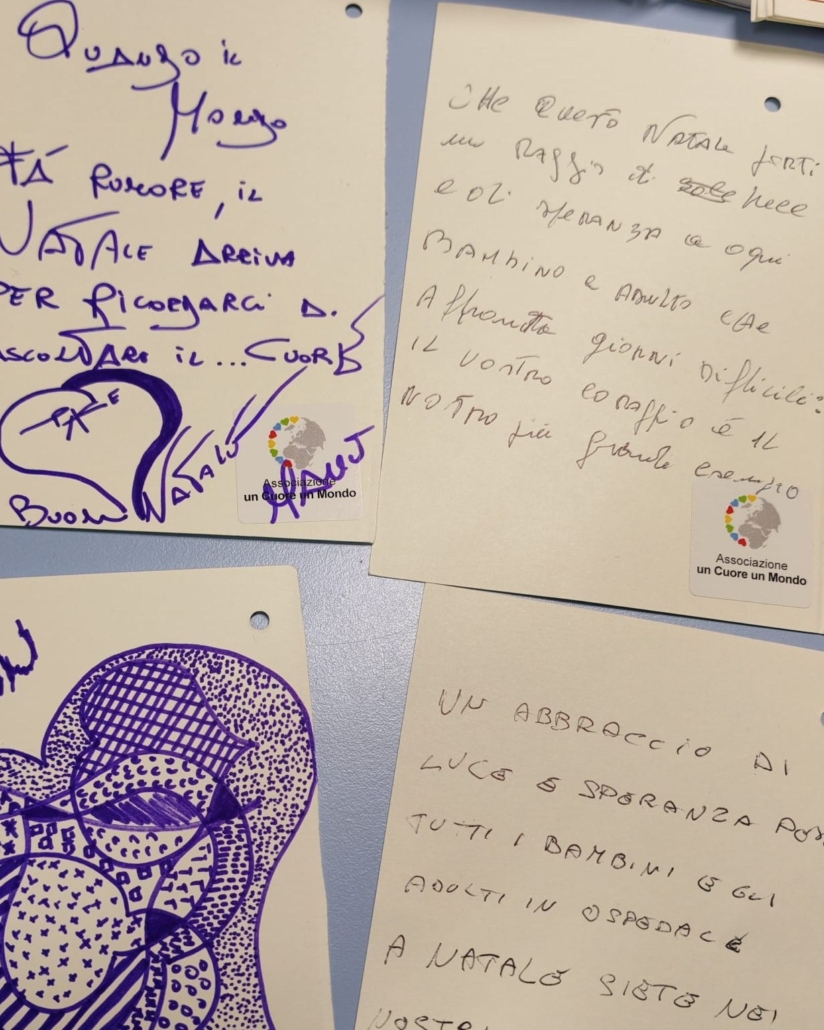 QUANDO IL
MONDO
FA RUMORE, IL
NATALE ARRIVA
PER RICORDARCI DI
ASCOLTARE IL ... CUORE
PACE
BUON NATALE
Associazione
un Cuore un Mondo
CHE QUESTO NATALE PORTI
un RAGGIO di luce
e di speranza a ogni
BAMBINO e ADULTO CHE
AFFronta giorni difficili:
IL VOSTRO coraggio è IL
NOSTRO più grande esempio
Associazione
un Cuore un Mondo
UN ABBRACCIO DI
LUCE E SPERANZA PER
TUTTI I BAMBINI E GLI
ADULTI IN OSPEDALE
A NATALE SIETE NEI
NOSTRI